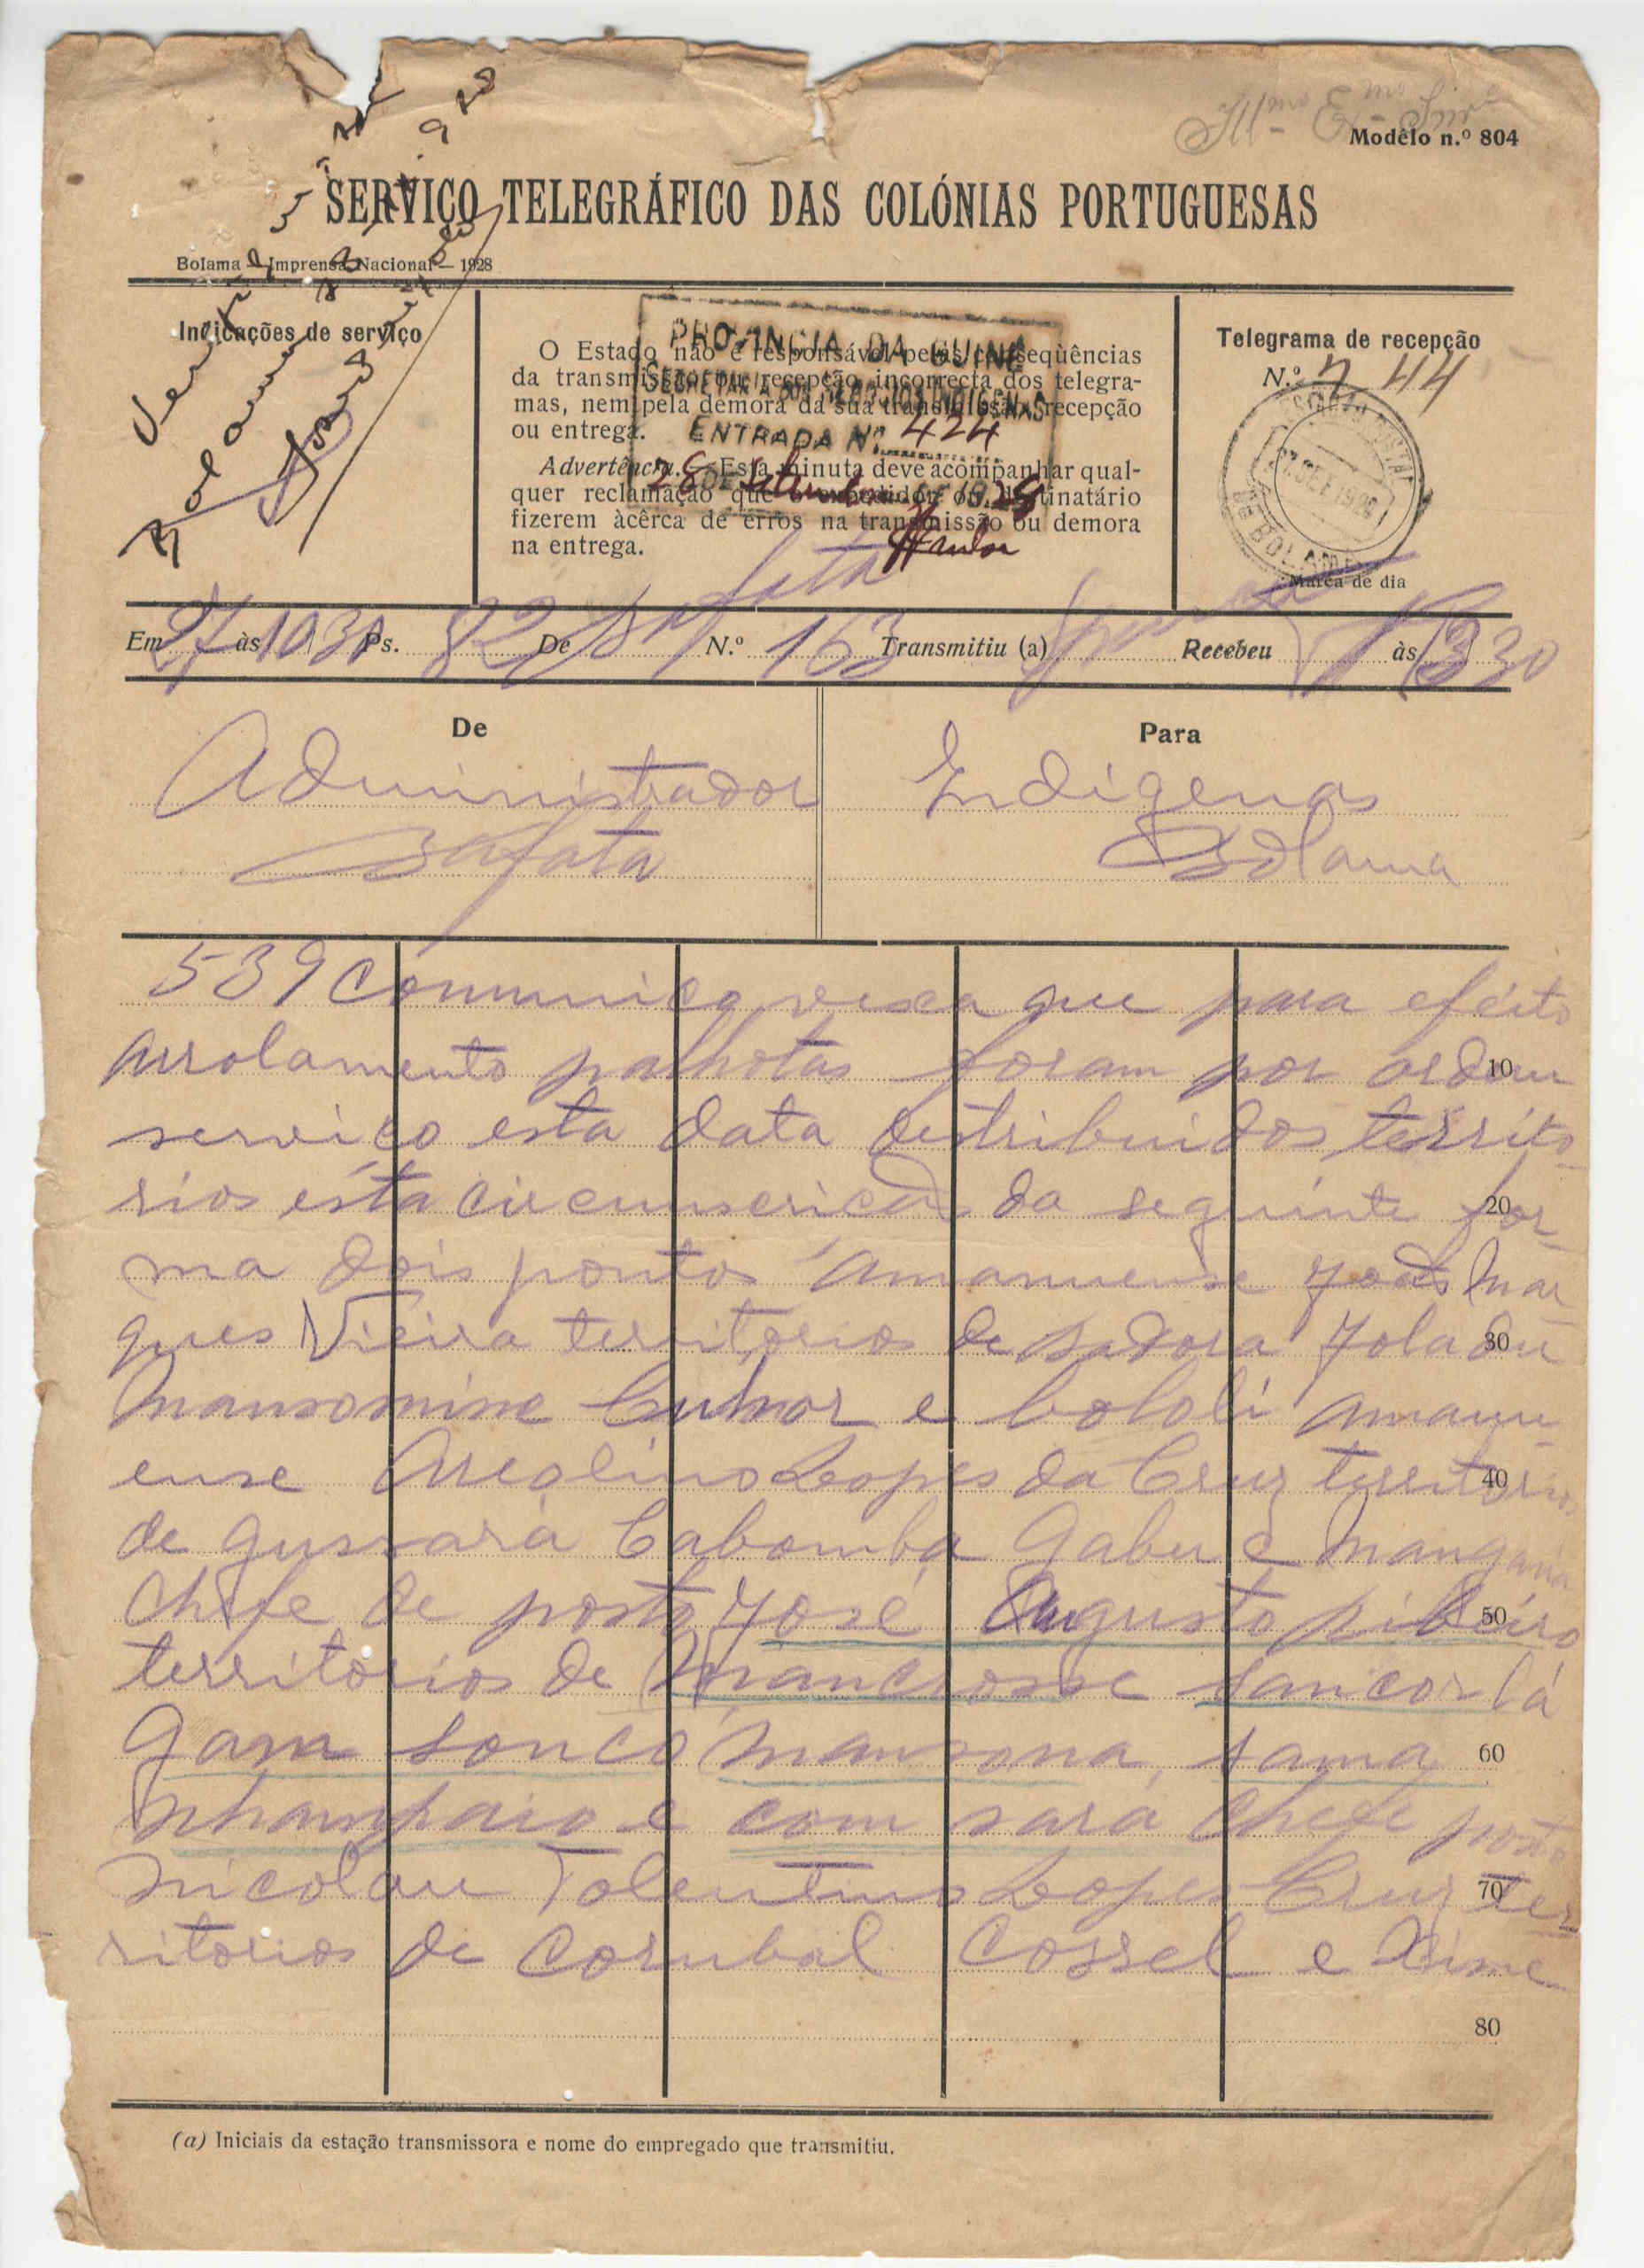 Illmo Exmo Snr
Modêlo n.º 804
SERVIÇO TELEGRÁFICO DAS COLÓNIAS PORTUGUESAS
Bolama — Imprensa Nacional — 1928
Indicações de serviço
Bolama
O Estado não é responsável pelas conseqüências
da transmissão ou recepção incorrecta dos telegra-
mas, nem pela demora da sua transmissão, recepção
ou entrega.
Advertência. — Esta minuta deve acompanhar qual-
quer reclamação que o expedidor ou destinatário
fizerem àcêrca de erros na transmissão ou demora
na entrega.
PROVINCIA DA GUINÉ
SECRETARIA DOS NEGOCIOS INDIGENAS
ENTRADA N.º 424
28 DE Setembro DE 1929
Telegrama de recepção
N.º 744
ESTAÇÃO POSTAL
27 SET 1929
DE BOLAMA
Marca de dia
Em 27 às 1030 Ps. 82 De Bafata N.º 163 Transmitiu (a) Recebeu às 1330
De
Para
Administrador
Indigenas
Bafata
Bolama
539 Comunico vexa que para efeito
arrolamento palhotas foram por ordem
10
serviço esta data destribuidos territo-
rios esta circumscrição da seguinte for-
20
ma dois pontos amanuense João Mar-
ques Vieira territorios de Badora Joladu
30
Mansomine Cuhor e Cololi amanu-
ense Arcolino Lopes da Cruz territorios
40
de gussará Cabomba Gabu e Mangania
Chefe de posto José Augusto Ribeiro
50
territorios de Mancrosse Sancorlá
Gam Soncó Mansona, Sama
60
Nhampaio e com sará Chefe posto
Nicolau Tolentino Lopes Cruz ter-
70
ritorios de Corubal Cossel e Xime
80
(a) Iniciais da estação transmissora e nome do empregado que transmitiu.